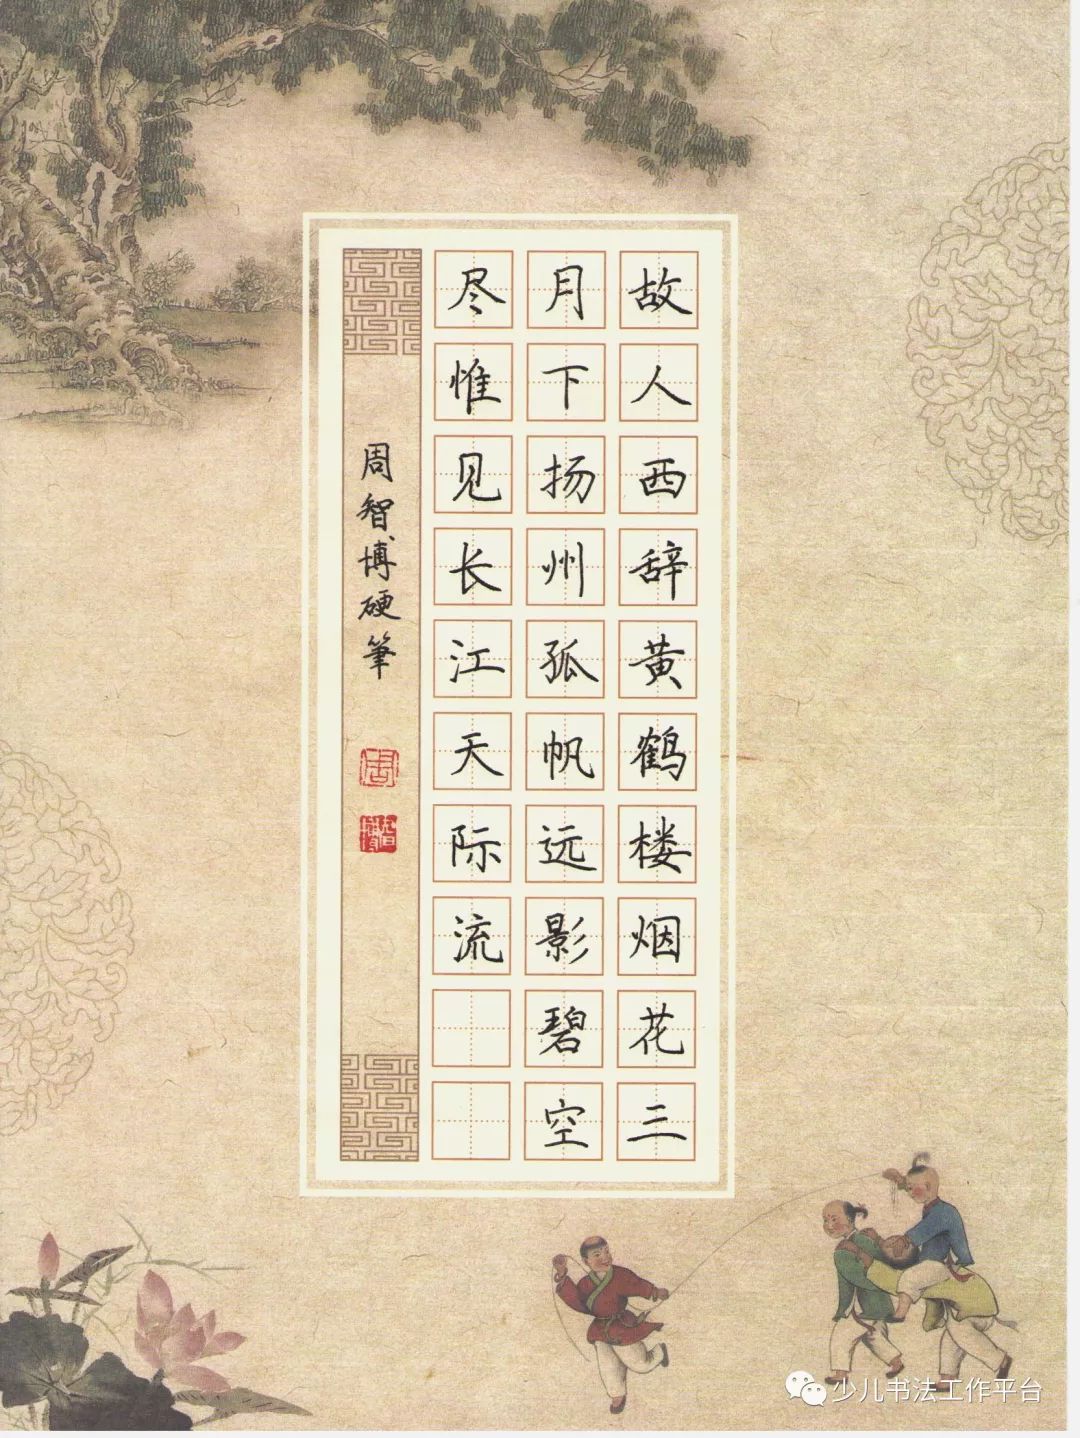 故人西辞黄鹤楼烟花三
月下扬州孤帆远影碧空
尽惟见长江天际流
周智博硬筆
周
智博
少儿书法工作平台